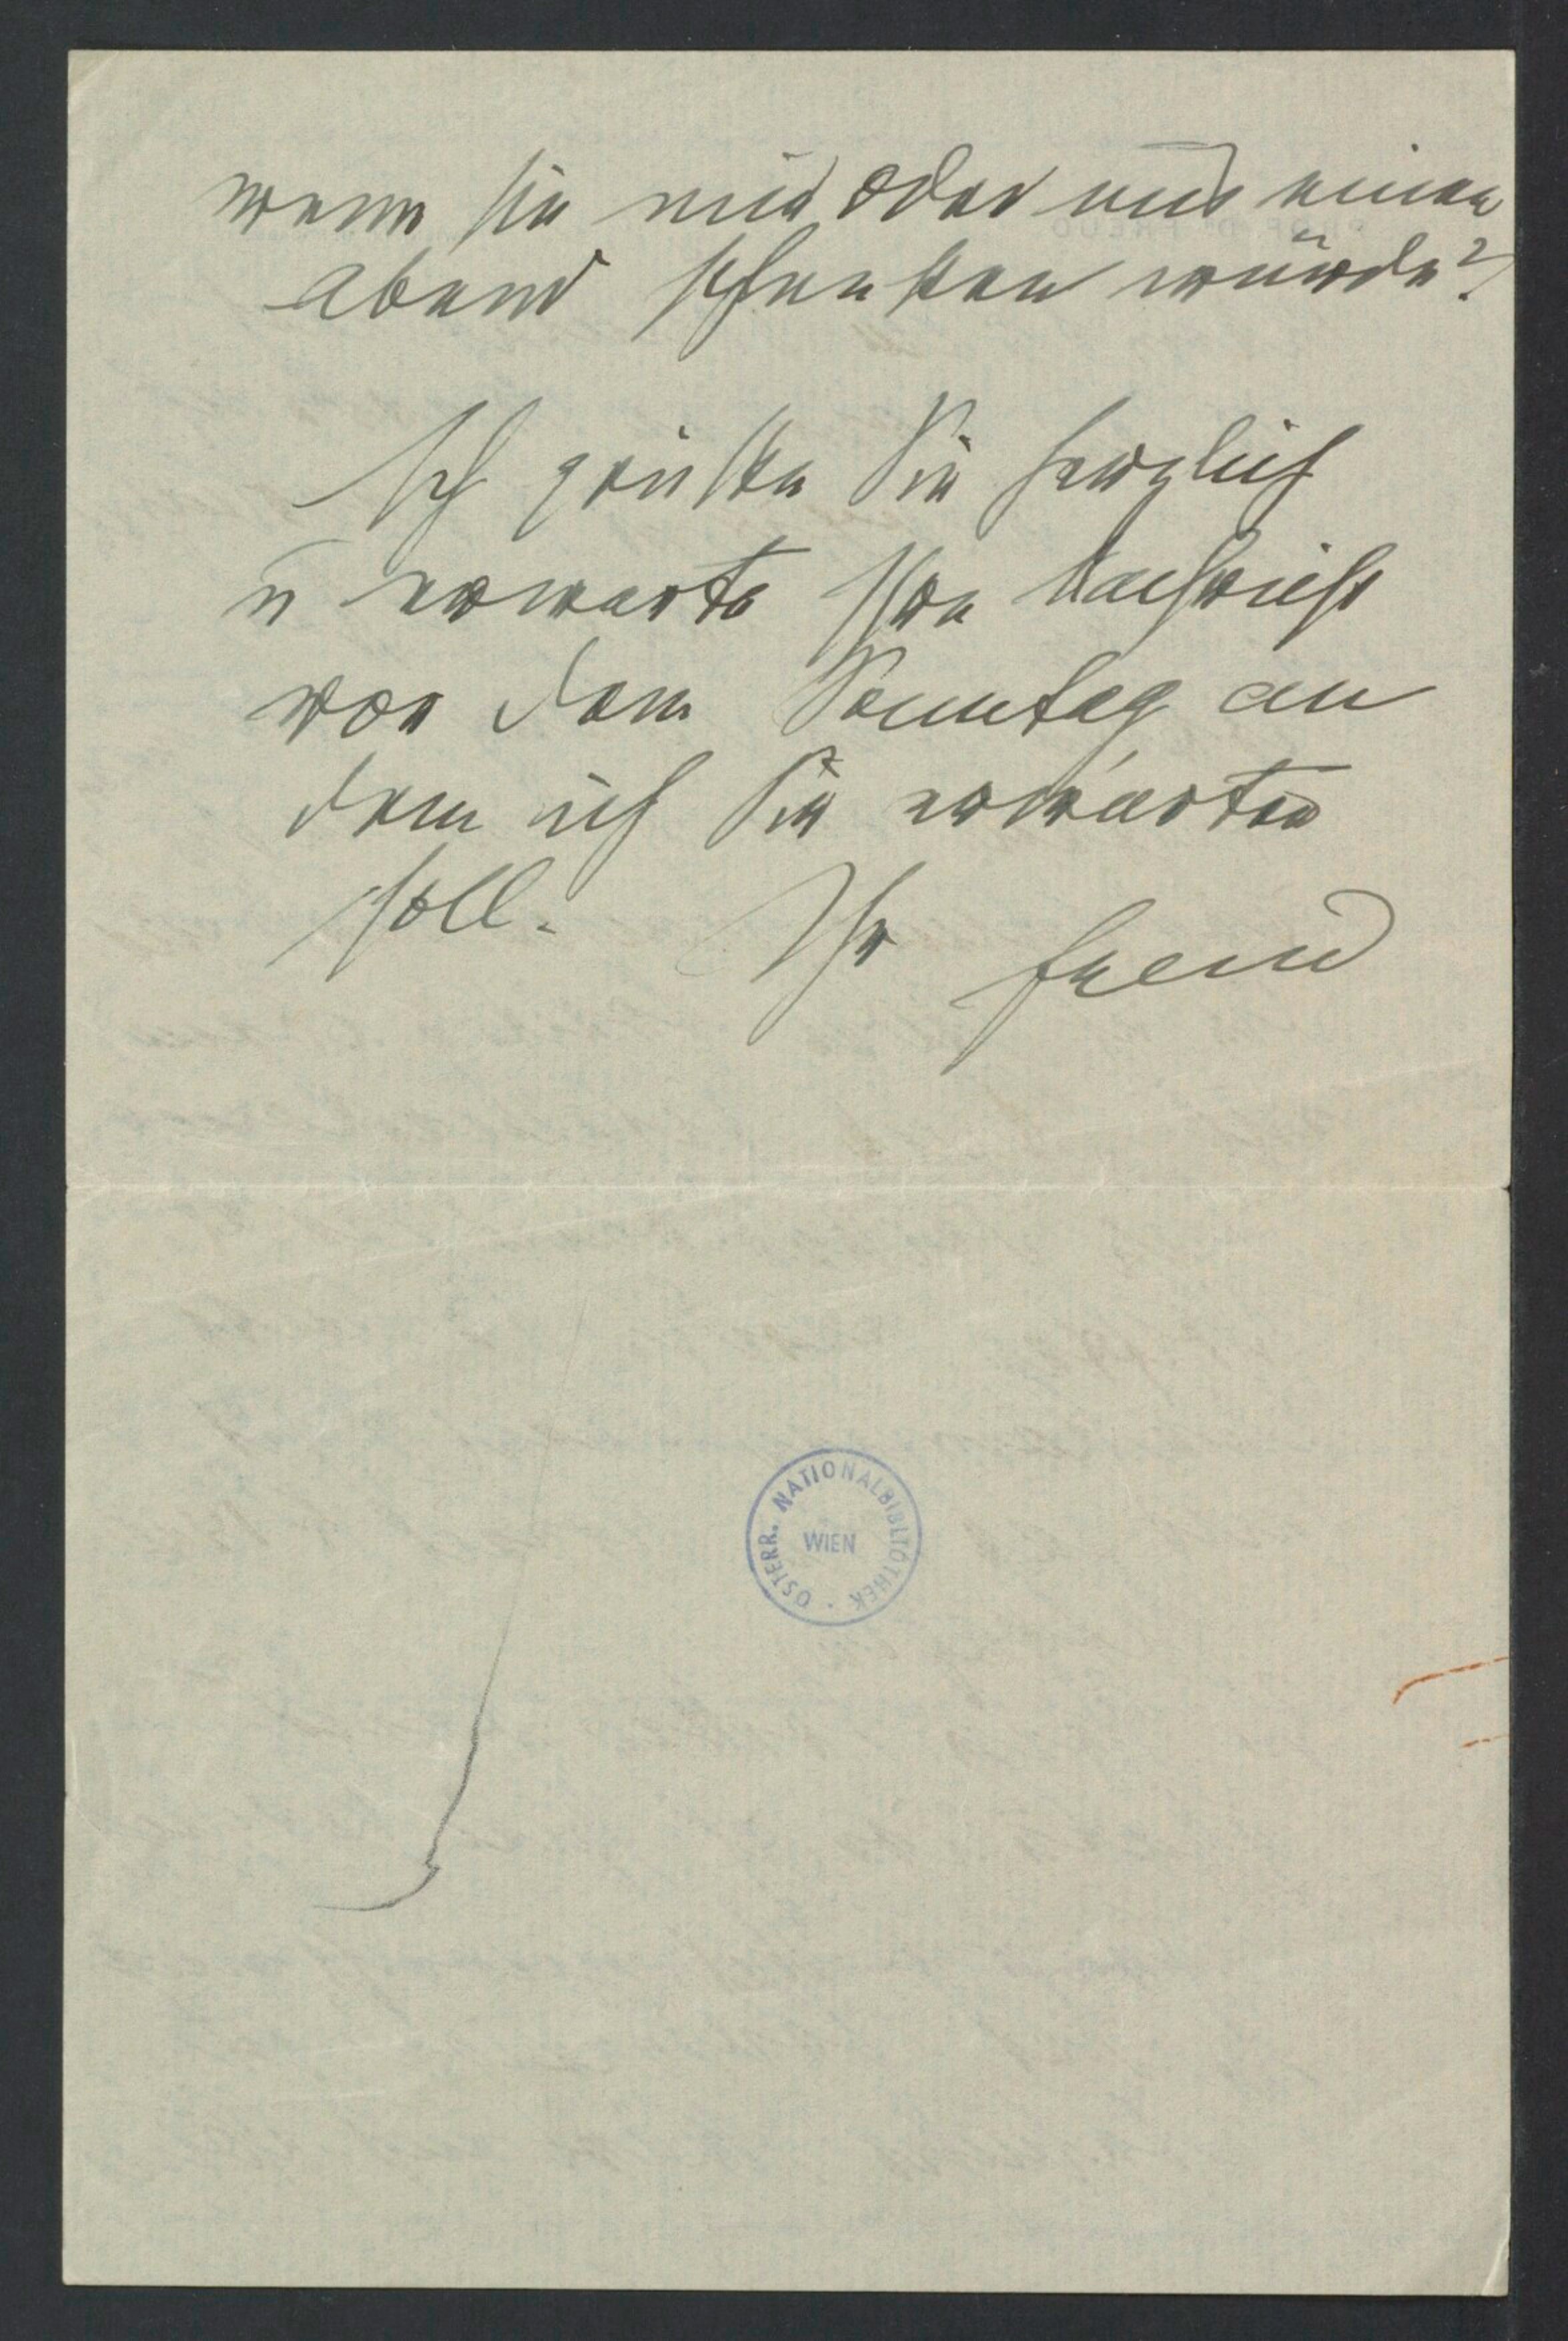 wenn sie mir oder uns einen
Abend schenken würde?
Ich grüße Sie herzlich
u erwarte Ihre Nachricht
vor dem Sonntag an
dem ich Sie erwarten
soll. Ihr Freud
ÖSTERR. NATIONALBIBLIOTHEK
WIEN